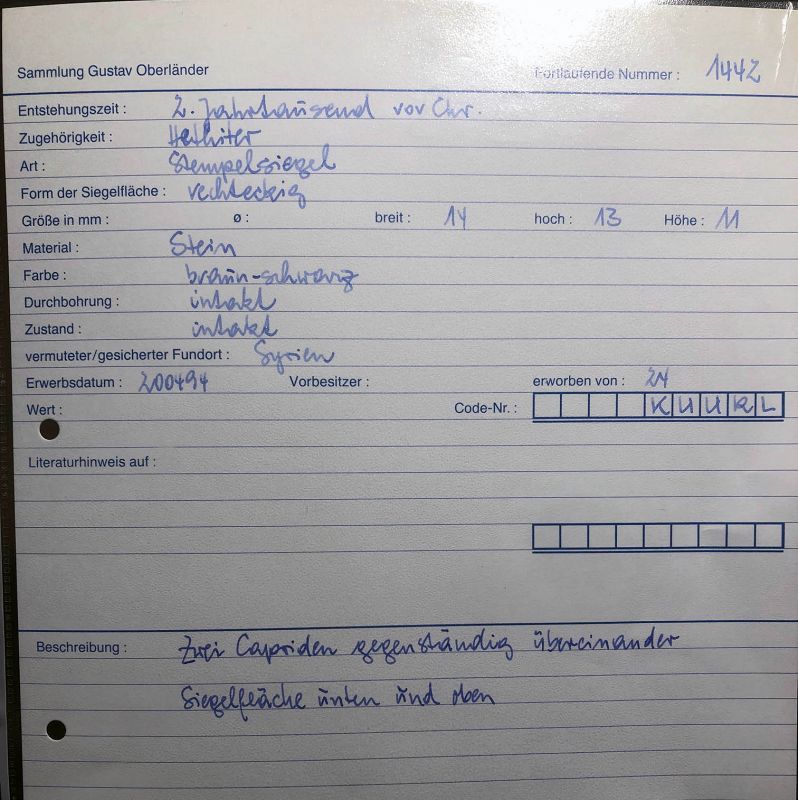 Sammlung Gustav Oberländer Fortlaufende Nummer : 1442
Entstehungszeit : 2. Jahrtausend vor Chr.
Zugehörigkeit : Hethiter
Art : Stempelsiegel
Form der Siegelfläche : rechteckig
Größe in mm : ø : breit : 14 hoch : 13 Höhe : 11
Material : Stein
Farbe : braun-schwarz
Durchbohrung : intakt
Zustand : intakt
vermuteter/gesicherter Fundort : Syrien
Erwerbsdatum : 200494 Vorbesitzer : erworben von :
Wert : Code-Nr. : KUURL
Literaturhinweis auf :
Beschreibung : Zwei Capriden gegenständig übereinander
Siegelfläche unten und oben